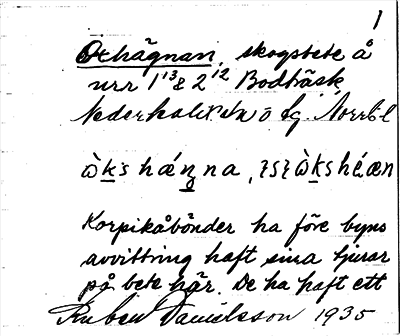 1
Oxhägnan, skogsbete å
urr 1¹³ & 2¹² Bodträsk,
Nederkalix sn o tg. Norrb l
ὼk̲s hán̲na, ὼk̲shéæn
Korpikåbönder ha före byns
avvittring haft sina tjurar
på bete här. De ha haft ett
Ruben Danielsson 1935